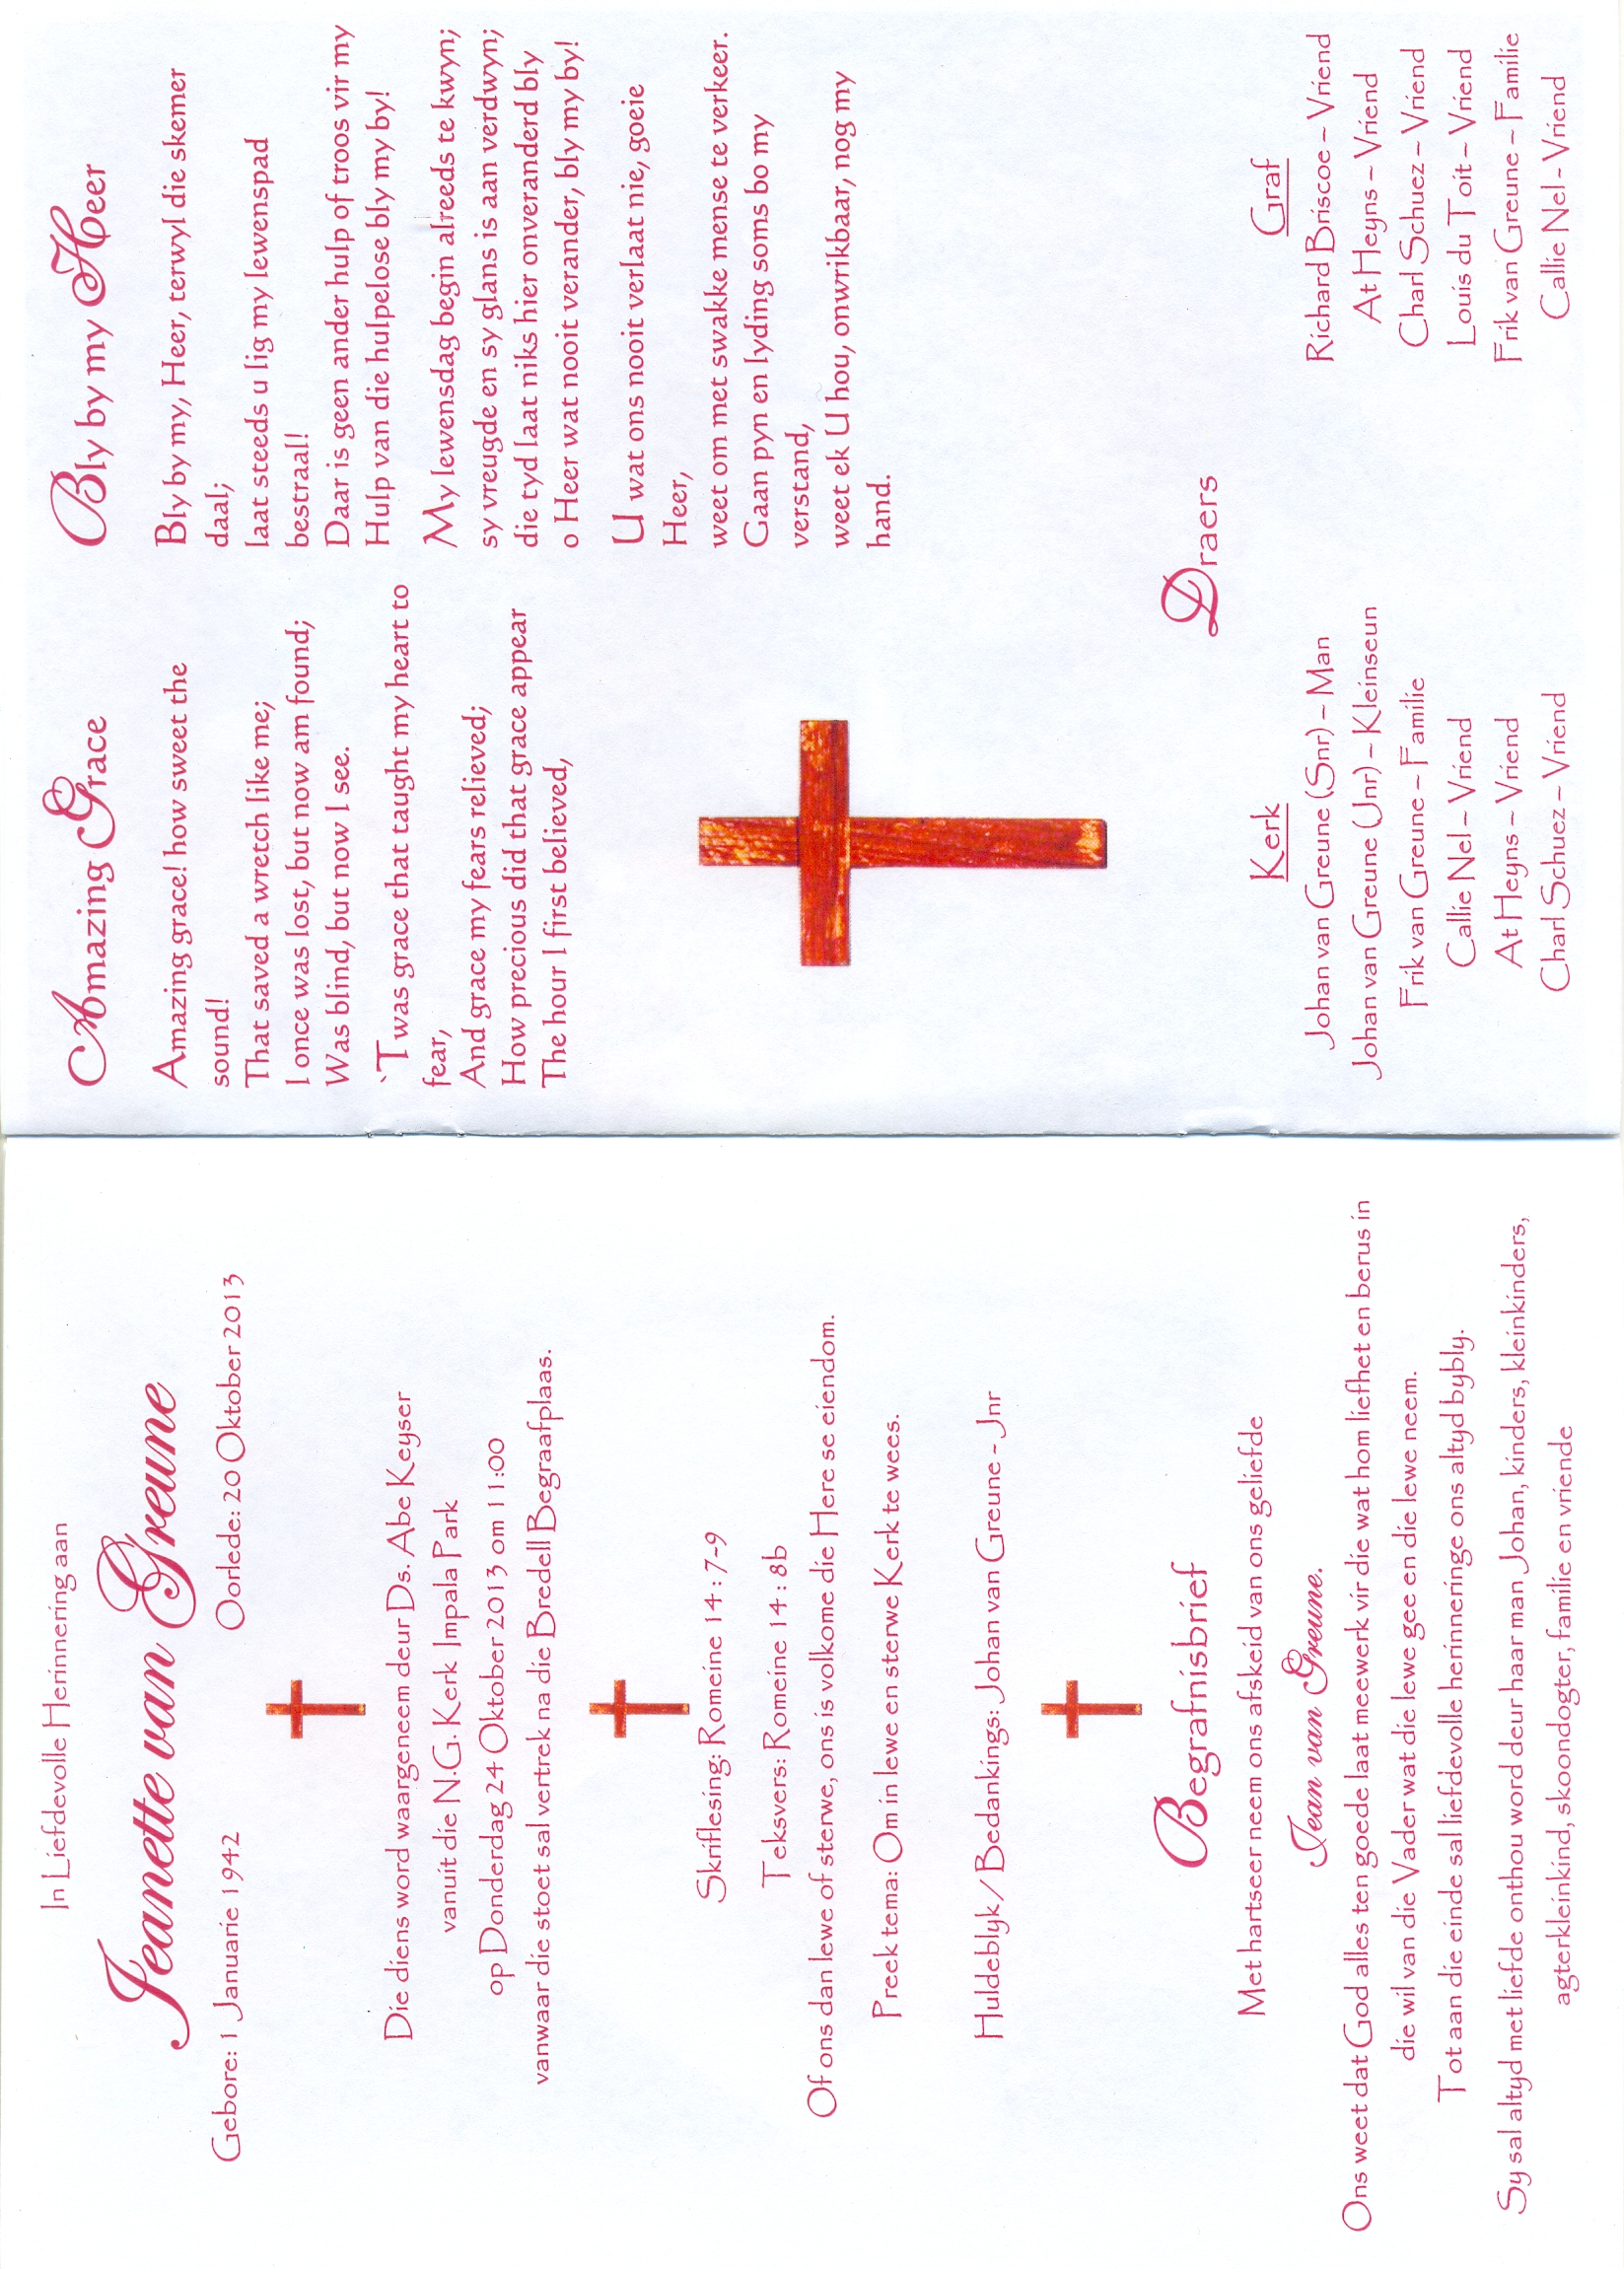 In Liefdevolle Herinnering aan
Jeanette van Greune
Gebore: 1 Januarie 1942 Oorlede: 20 Oktober 2013
Die diens word waargeneem deur Ds. Abe Keyser
vanuit die N.G. Kerk Impala Park
op Donderdag 24 Oktober 2013 om 11:00
vanwaar die stoet sal vertrek na die Bredell Begraafplaas.
Skriflesing: Romeine 14 : 7-9
Teksvers: Romeine 14 : 8b
Of ons dan lewe of sterwe, ons is volkome die Here se eiendom.
Preek tema: Om in lewe en sterwe Kerk te wees.
Huldeblyk / Bedankings: Johan van Greune - Jnr
Begrafnisbrief
Met hartseer neem ons afskeid van ons geliefde
Jean van Greune.
Ons weet dat God alles ten goede laat meewerk vir die wat hom liefhet en berus in
die wil van die Vader wat die lewe gee en die lewe neem.
Tot aan die einde sal liefdevolle herinneringe ons altyd bybly.
Sy sal altyd met liefde onthou word deur haar man Johan, kinders, kleinkinders,
agterkleinkind, skoondogter, familie en vriende
Amazing Grace
Amazing grace! how sweet the
sound!
That saved a wretch like me;
I once was lost, but now am found;
Was blind, but now I see.
`Twas grace that taught my heart to
fear,
And grace my fears relieved;
How precious did that grace appear
The hour I first believed,
Bly by my Heer
Bly by my, Heer, terwyl die skemer
daal;
laat steeds u lig my lewenspad
bestraal!
Daar is geen ander hulp of troos vir my
Hulp van die hulpelose bly my by!
My lewensdag begin alreeds te kwyn;
sy vreugde en sy glans is aan verdwyn;
die tyd laat niks hier onveranderd bly
o Heer wat nooit verander, bly my by!
U wat ons nooit verlaat nie, goeie
Heer,
weet om met swakke mense te verkeer.
Gaan pyn en lyding soms bo my
verstand,
weet ek U hou, onwrikbaar, nog my
hand.
Draers
Kerk
Johan van Greune (Snr) – Man
Johan van Greune (Jnr) – Kleinseun
Frik van Greune – Familie
Callie Nel – Vriend
At Heyns – Vriend
Charl Schuez – Vriend
Graf
Richard Briscoe – Vriend
At Heyns – Vriend
Charl Schuez – Vriend
Louis du Toit – Vriend
Frik van Greune – Familie
Callie Nel - Vriend